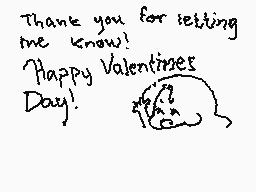 Thank you for letting
me know!
Happy Valentines
Day!